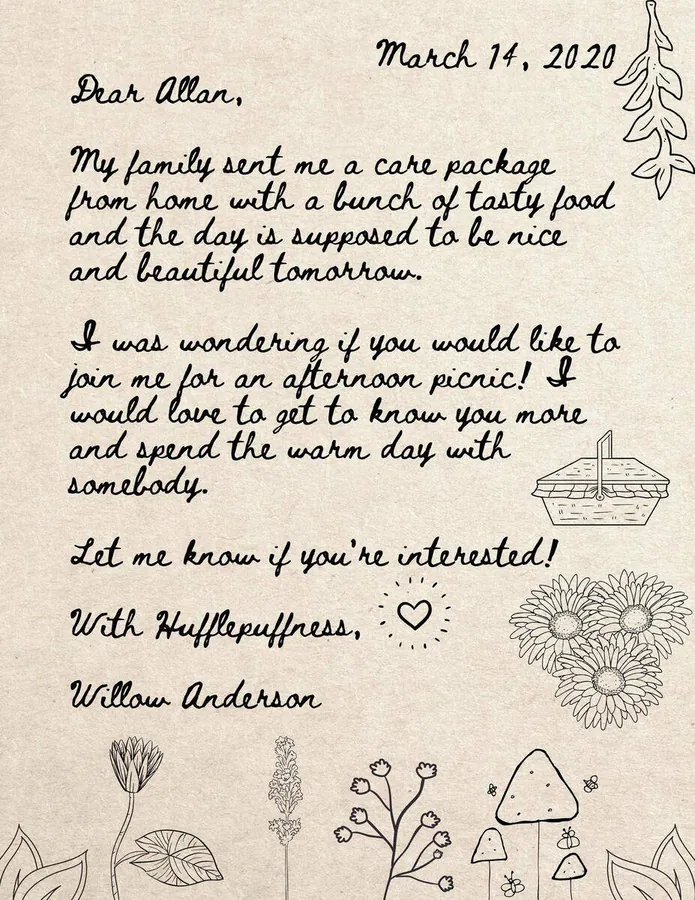 March 14, 2020
Dear Allan,
My family sent me a care package
from home with a bunch of tasty food
and the day is supposed to be nice
and beautiful tomorrow.
I was wondering if you would like to
join me for an afternoon picnic! I
would love to get to know you more
and spend the warm day with
somebody.
Let me know if you're interested!
With Hufflepuffness,
Willow Anderson